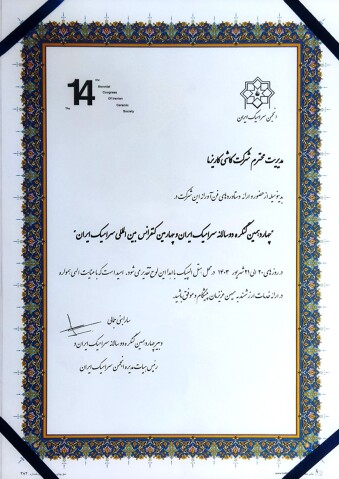 The
14
th
Biennial
Congress
Of Iranian
Ceramic
Society
انجمن سرامیک ایران
مدیریت محترم شرکت کاشی کاریزما
بدینوسیله از حضور و ارائه دستاوردهای فن‌آورانه این شرکت در
"چهاردهمین کنگره دوسالانه سرامیک ایران و چهارمین کنفرانس بین المللی سرامیک ایران"
در روزهای ۲۰ الی ۲۱ شهریور ۱۴۰۳ در محل هتل المپیک با ابداء این لوح تقدیر می شود. امید است که با عنایت الهی همواره
در ارائه خدمات ارزشمند به میهن عزیزمان پیشگام و موفق باشید.
سارا بنی جمالی
دبیر چهاردهمین کنگره دوسالانه سرامیک ایران و
رئیس هیات مدیره انجمن سرامیک ایران